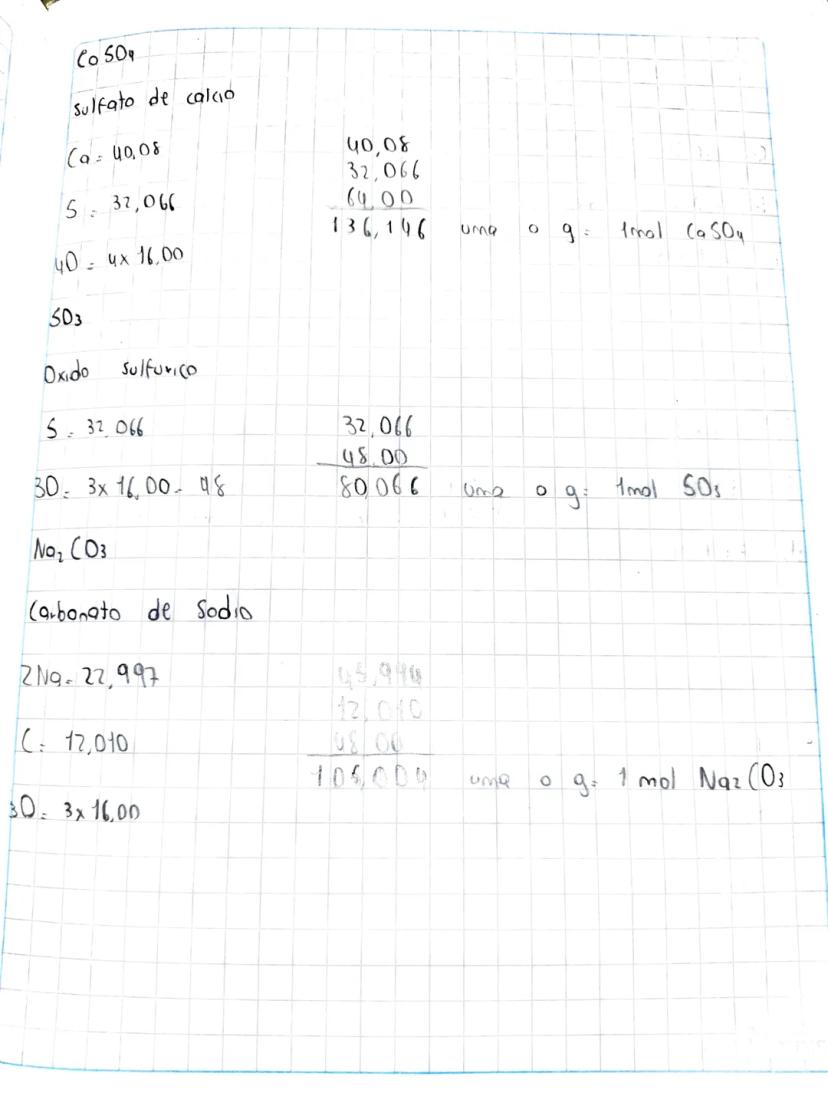 CaSO4
sulfato de calcio
Ca = 40,08 40,08
32,066
S = 32,066 64,00
136,146 uma o g = 1mol CaSO4
4O = 4x 16,00
SO3
Oxido sulfurico
S = 32,066 32,066
48,00
3O = 3x 16,00 = 48 80,066 uma o g = 1mol SO3
Na2 CO3
Carbonato de Sodio
2Na = 22,997 45,994
12,010
C = 12,010 48,00
uma o g = 1 mol Na2 CO3
3O = 3x 16,00